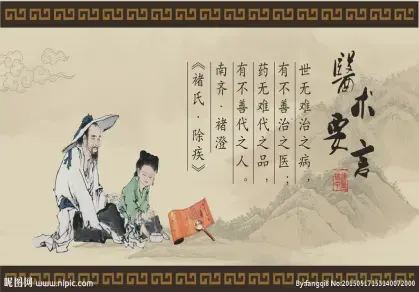 醫术要言
世无难治之病，
有不善治之医；
药无难代之品，
有不善代之人。
南齐·褚澄
《褚氏·除疾》
昵图网 www.nipic.com
By:fangqi8